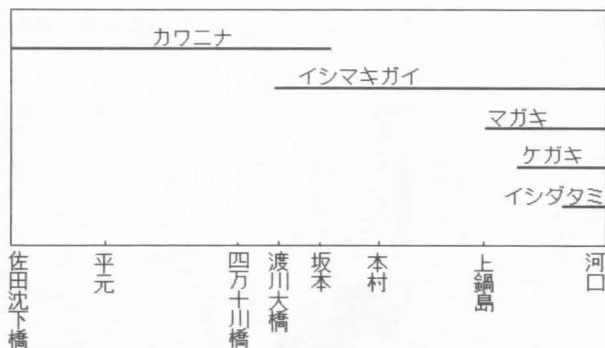 カワニナ
イシマキガイ
マガキ
ケガキ
イシダタミ
佐田沈下橋
平元
四万十川橋
渡川大橋
坂本
本村
上鍋島
河口